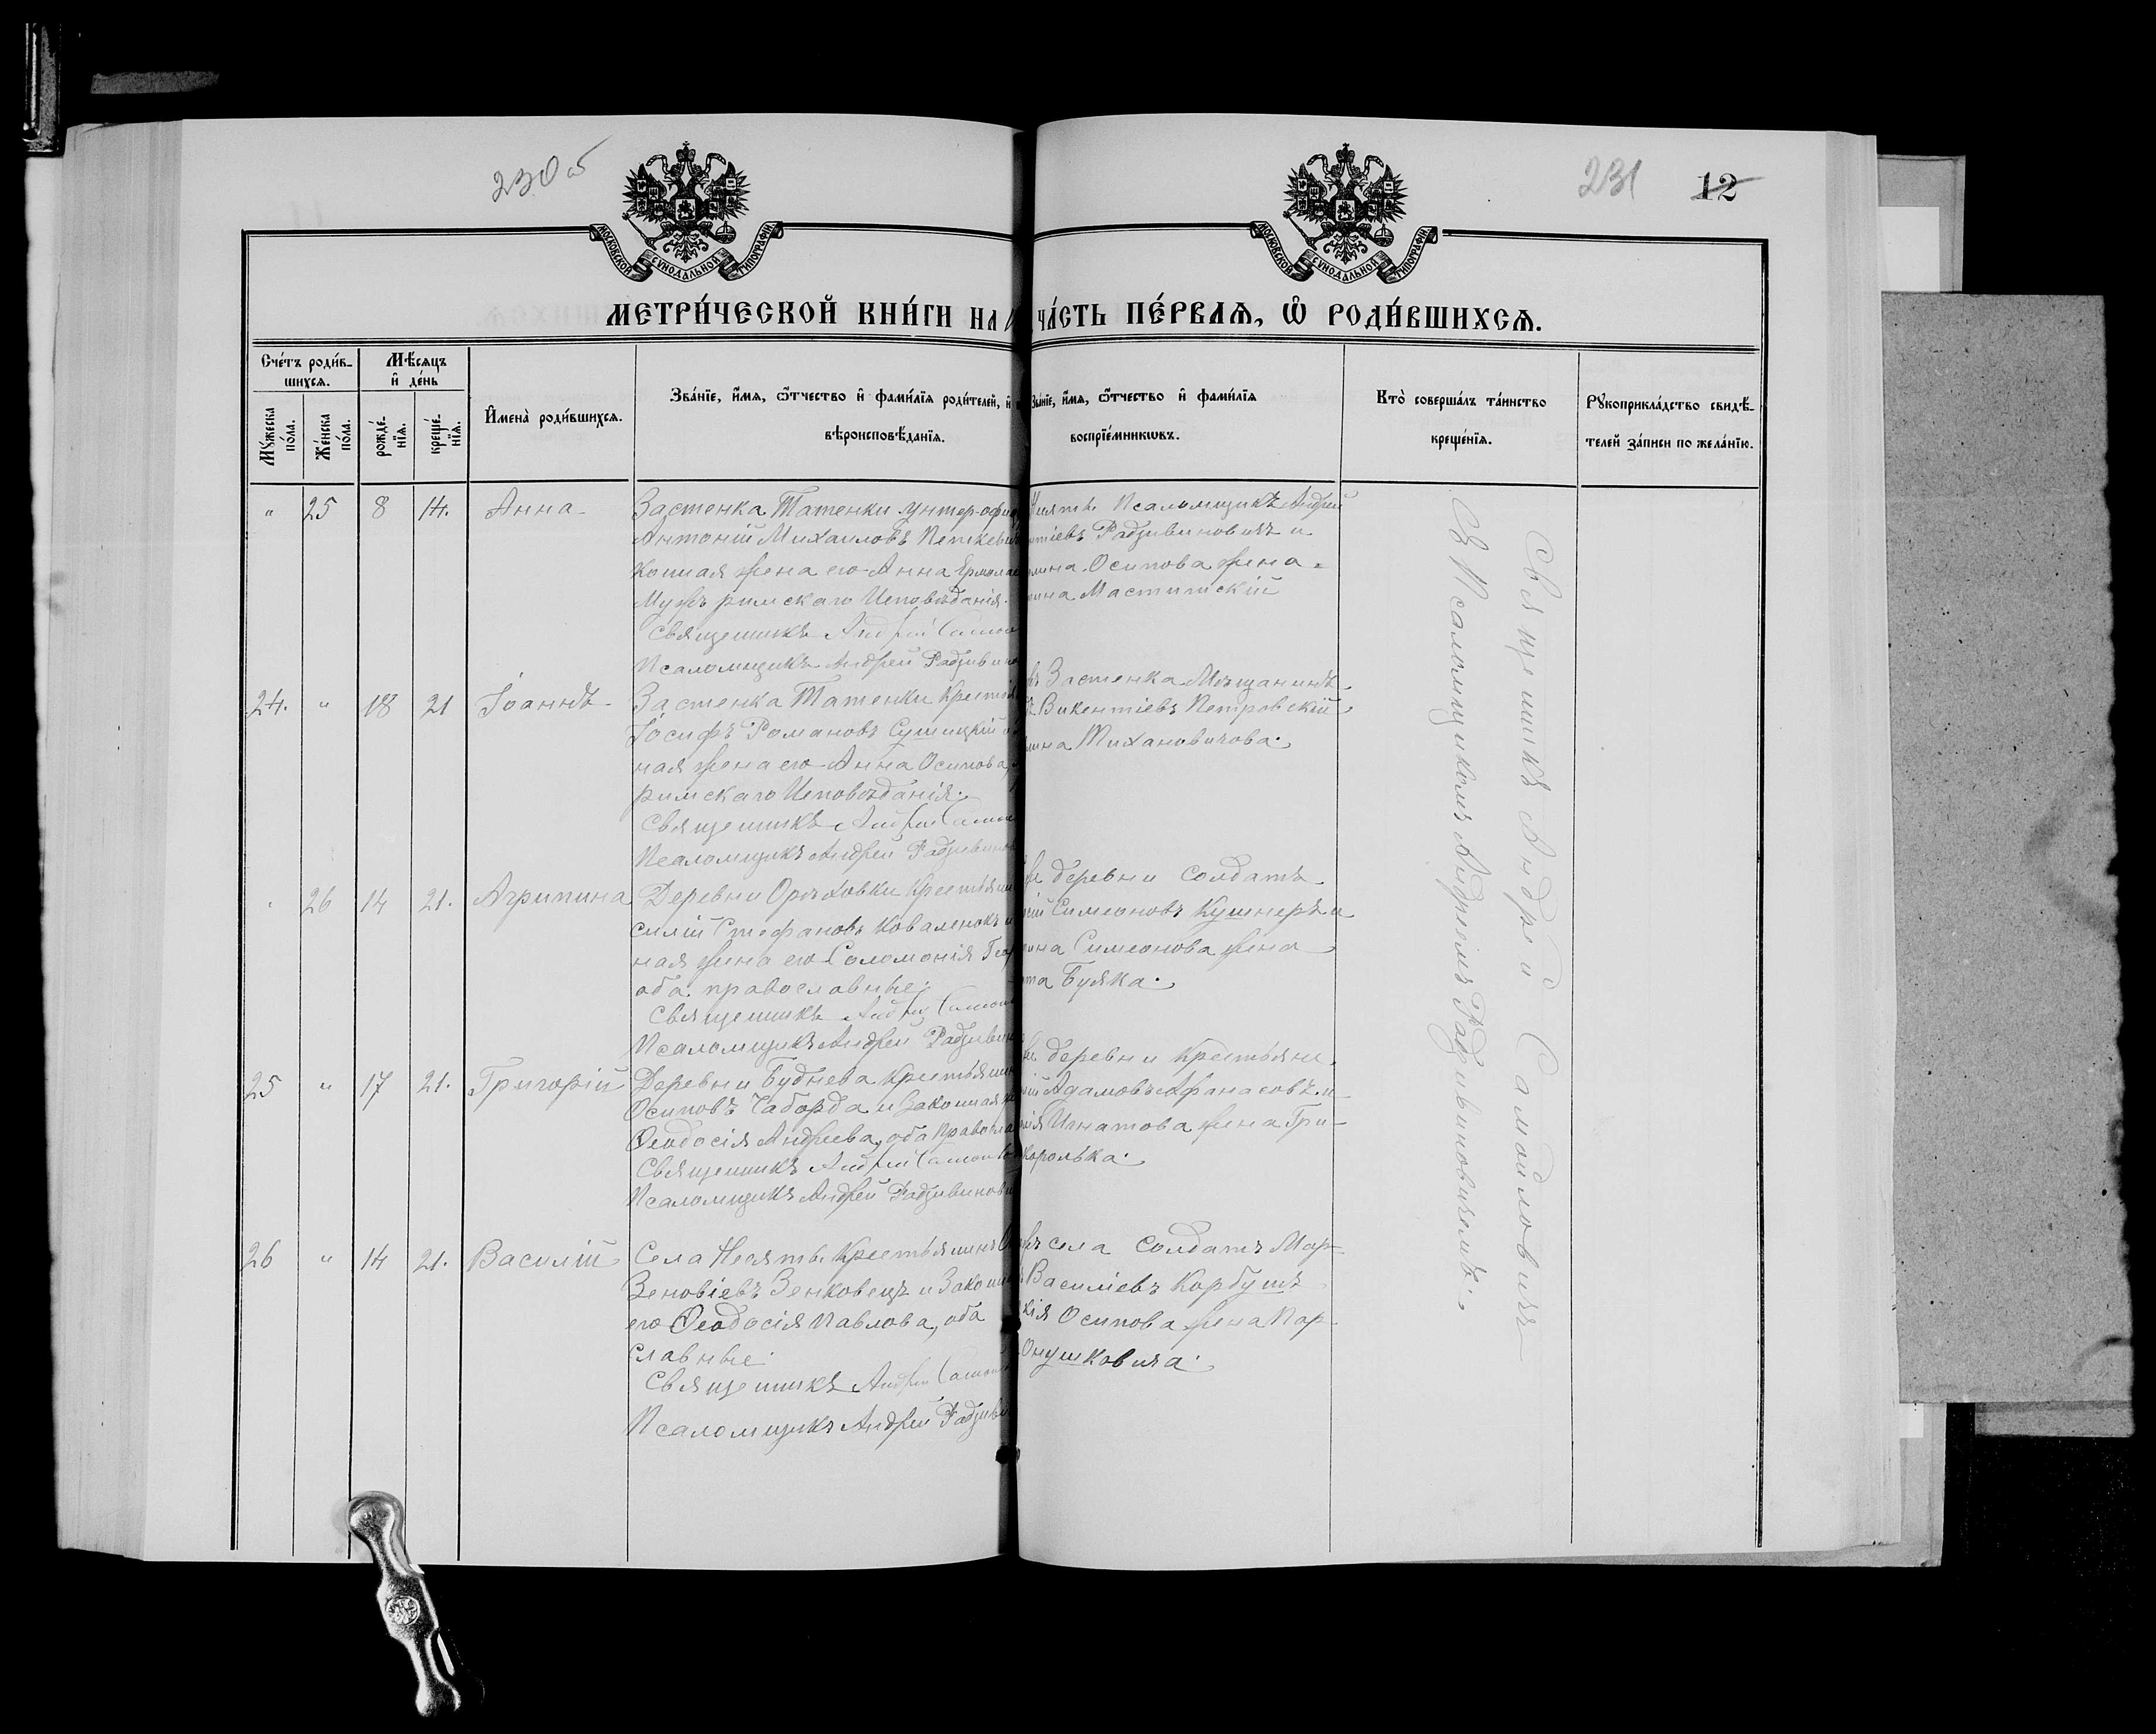 230 об
231 12
МОСКОВСКОЙ СѴНОДАЛЬНОЙ ТИПОГРАФІИ
МОСКОВСКОЙ СѴНОДАЛЬНОЙ ТИПОГРАФІИ
МЕТРИ́ЧЕСКОЙ КНИ́ГИ НА
ЧА́СТЬ ПЕ́РВАѦ, Ѽ РОДИ́ВШИХСѦ.
Сче́тъ роди́в-
шихсѧ.
Мꙋжеска по́ла.
Же́нска по́ла.
Мѣ́сяцъ
и҆ де́нь
рожде́-
нїѧ.
креще́-
нїѧ.
И҆мена̀ роди́вшихсѧ.
Зва́нїе, и҆́мѧ, ѻ҆́тчество и҆ фами́лїѧ роди́телей, и҆
вѣроисповѣ́данїѧ.
Зва́нїе, и҆́мѧ, ѻ҆́тчество и҆ фами́лїѧ
воспрїе́мникѡвъ.
Кто̀ соверша́лъ та́инство
креще́нїѧ.
Рꙋкоприкла́дство свидѣ́-
телей за́писи по жела́нїю.
" 25 8 14. Анна
Застенка Татенки унтер-офи
Антоній Михаиловъ Петкевич
конная жена его Анна Ермола
Мужъ римскаго Исповѣданія.
Священникъ Андрей Само
Псаломщикъ Андрей Радзивино
Псаломщикъ Андрей
нтіевъ Радзивиновичъ и
Осипова жена
Мастытскій
24. " 18 21 Іоаннъ
Застенка Татенки Крестья
Іосифъ Романовъ Сушицкій
ная жена его Анна Осипова,
римскаго Исповѣданія.
Священникъ Андрей Само
Псаломщикъ Андрей Радзивинов
Застенка Мѣщанинъ
Викентіевъ Петровскій
Михановичова.
" 26 14 21. Агрипина
Деревни Орѣховки Крестьянин
силій Стефановъ Коваленокъ и
ная жена его Соломонія Геор
оба православные.
Священникъ Андрей Само
Псаломщикъ Андрей Радзивин
деревни Солдатъ
Симеоновъ Кушнеръ и
Симеонова жена
Буяка.
25 " 17 21. Григорій
Деревни Буднева Крестьянин
Осиповъ Чаборда и Законная
Ѳеодосія Андреева, оба Правосла
Священникъ Андрей Самойло
Псаломщикъ Андрей Радзивинови
деревни Крестьяне
Адамовъ Афанасовъ и
Игнатова жена Гри-
Королька.
26 " 14 21. Василій
Села Несяты Крестьянинъ
Зеновіевъ Зенковецъ и Законн
его Ѳеодосія Павлова, оба
славные.
Священникъ Андрей Само
Псаломщикъ Андрей Радзиви
села Солдатъ Мар-
Василіевъ Корбутъ
Осипова жена Пор-
Онушковича.
Священникъ Андрей Самойловичъ
Съ Псаломщикомъ Андреемъ Радзивиновичемъ.